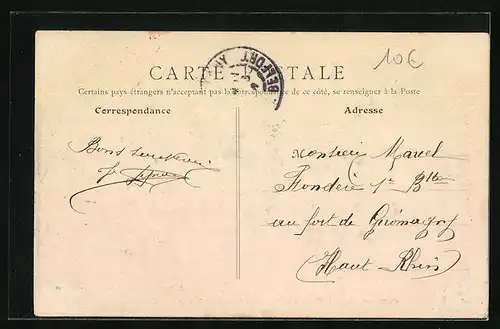 10€
BELFORT
CARTE POSTALE
Certains pays étrangers n'acceptant pas la correspondance de ce côté, se renseigner à la Poste
Correspondance
Adresse
Bons
Monsieur Marcel
1re Bie
au fort de Giromagny
(Haut Rhin)